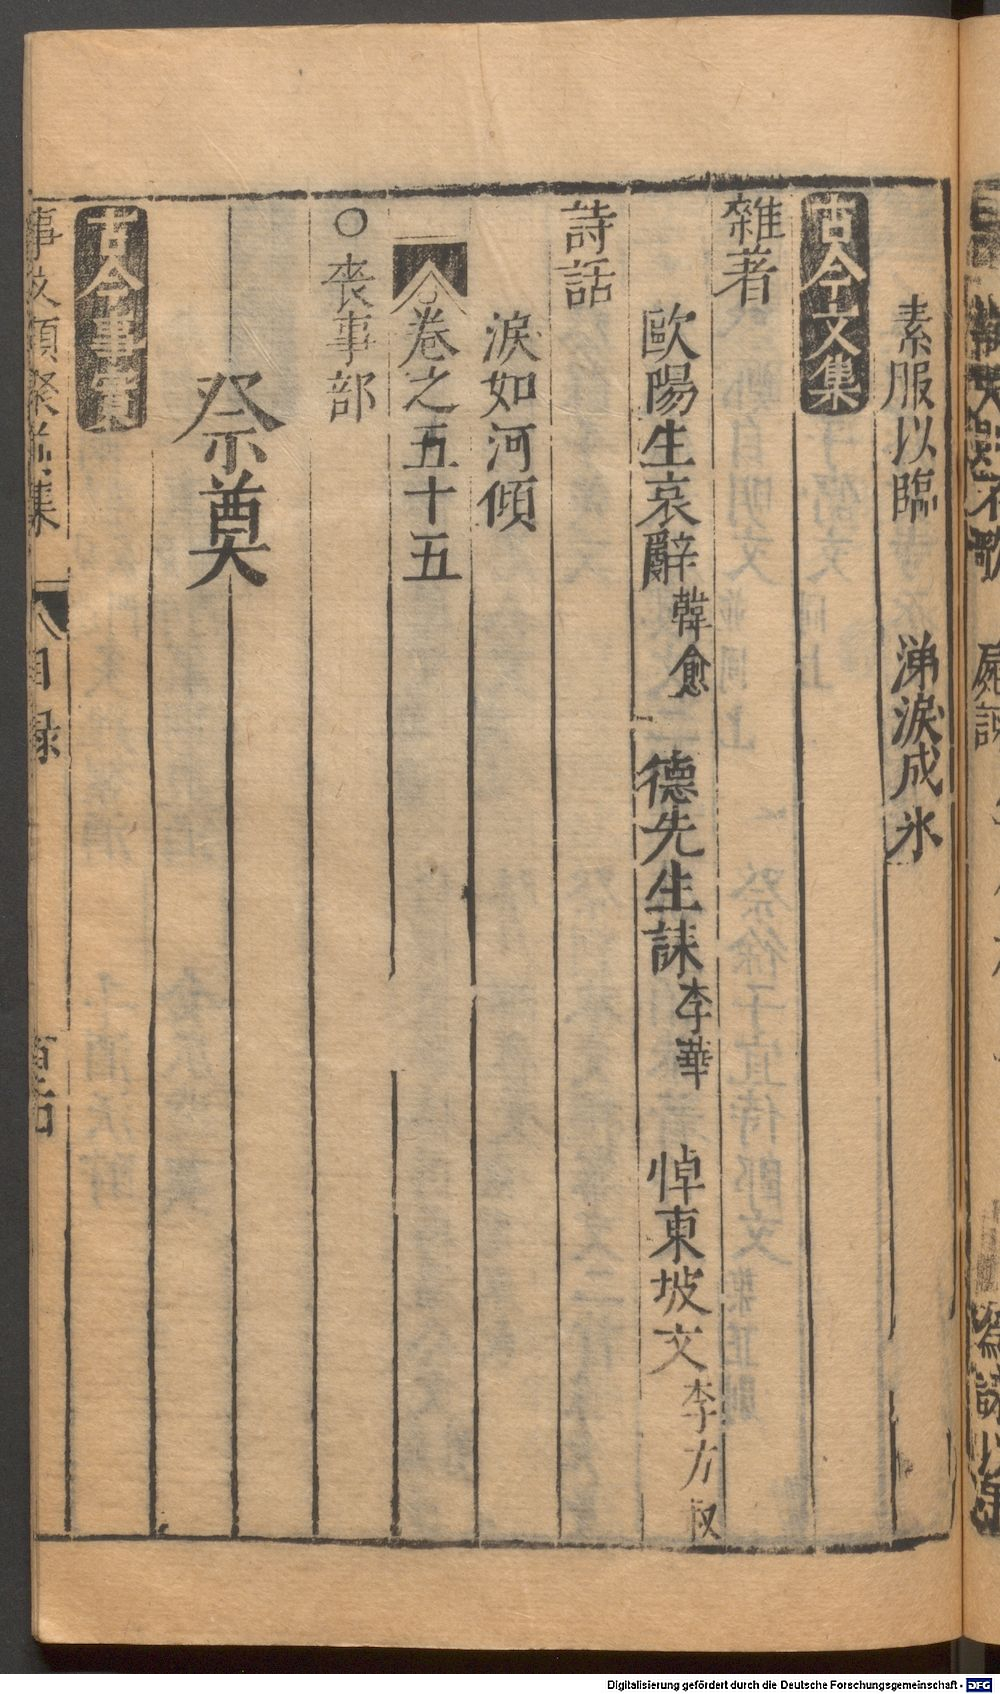 素服以臨 涕淚成氷
古今文集
雜著
歐陽生哀辭 韓愈 德先生誄 李華 悼東坡文 李方叔
詩話
淚如河傾
卷之五十五
○喪事部
祭奠
古今事實
事文類聚前集 目録
Digitalisierung gefördert durch die Deutsche Forschungsgemeinschaft - DFG